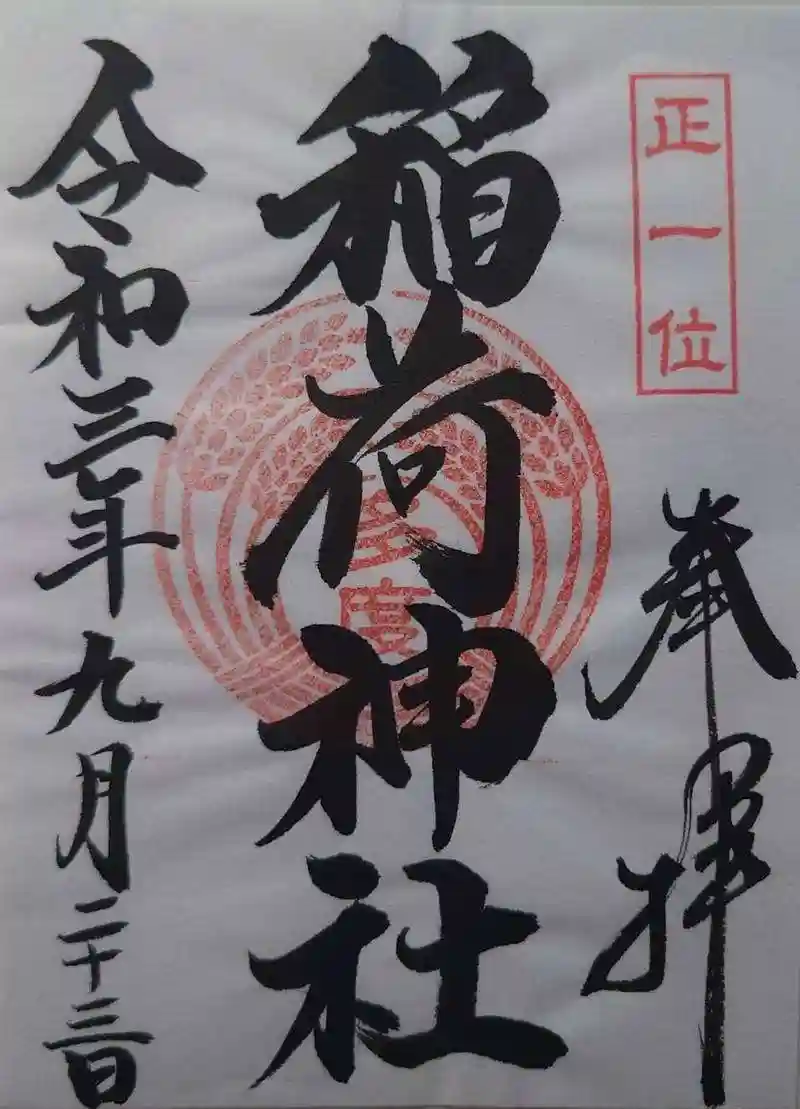 正一位
奉拝
稲荷神社
多度
令和三年九月二十三日